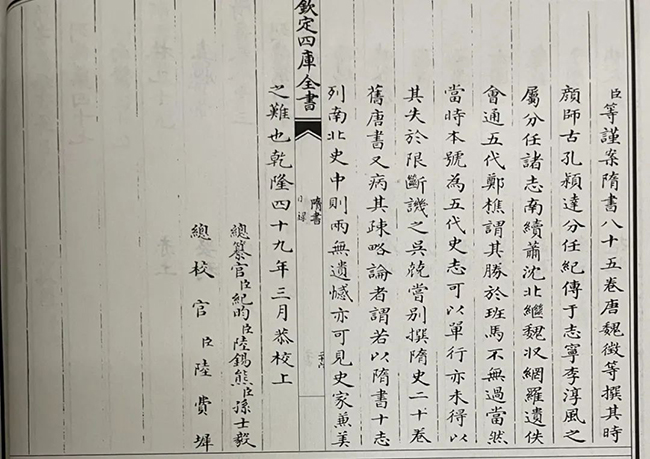 臣等謹案隋書八十五卷唐魏徵等撰其時
顔師古孔穎達分任紀傳于志寧李淳風之
屬分任諸志南續蕭沈北繼魏収網羅遺佚
會通五代鄭樵謂其勝於班馬不無過當然
當時本號為五代史志可以單行亦未得以
其失於限斷譏之吳兢嘗別撰隋史二十卷
舊唐書又病其疎略論者謂若以隋書十志
列南北史中則兩無遺憾亦可見史家兼美
欽定四庫全書
隋書
之難也乾隆四十九年三月恭校上
總纂官臣紀昀臣陸錫熊臣孫士毅
總校官臣陸費墀